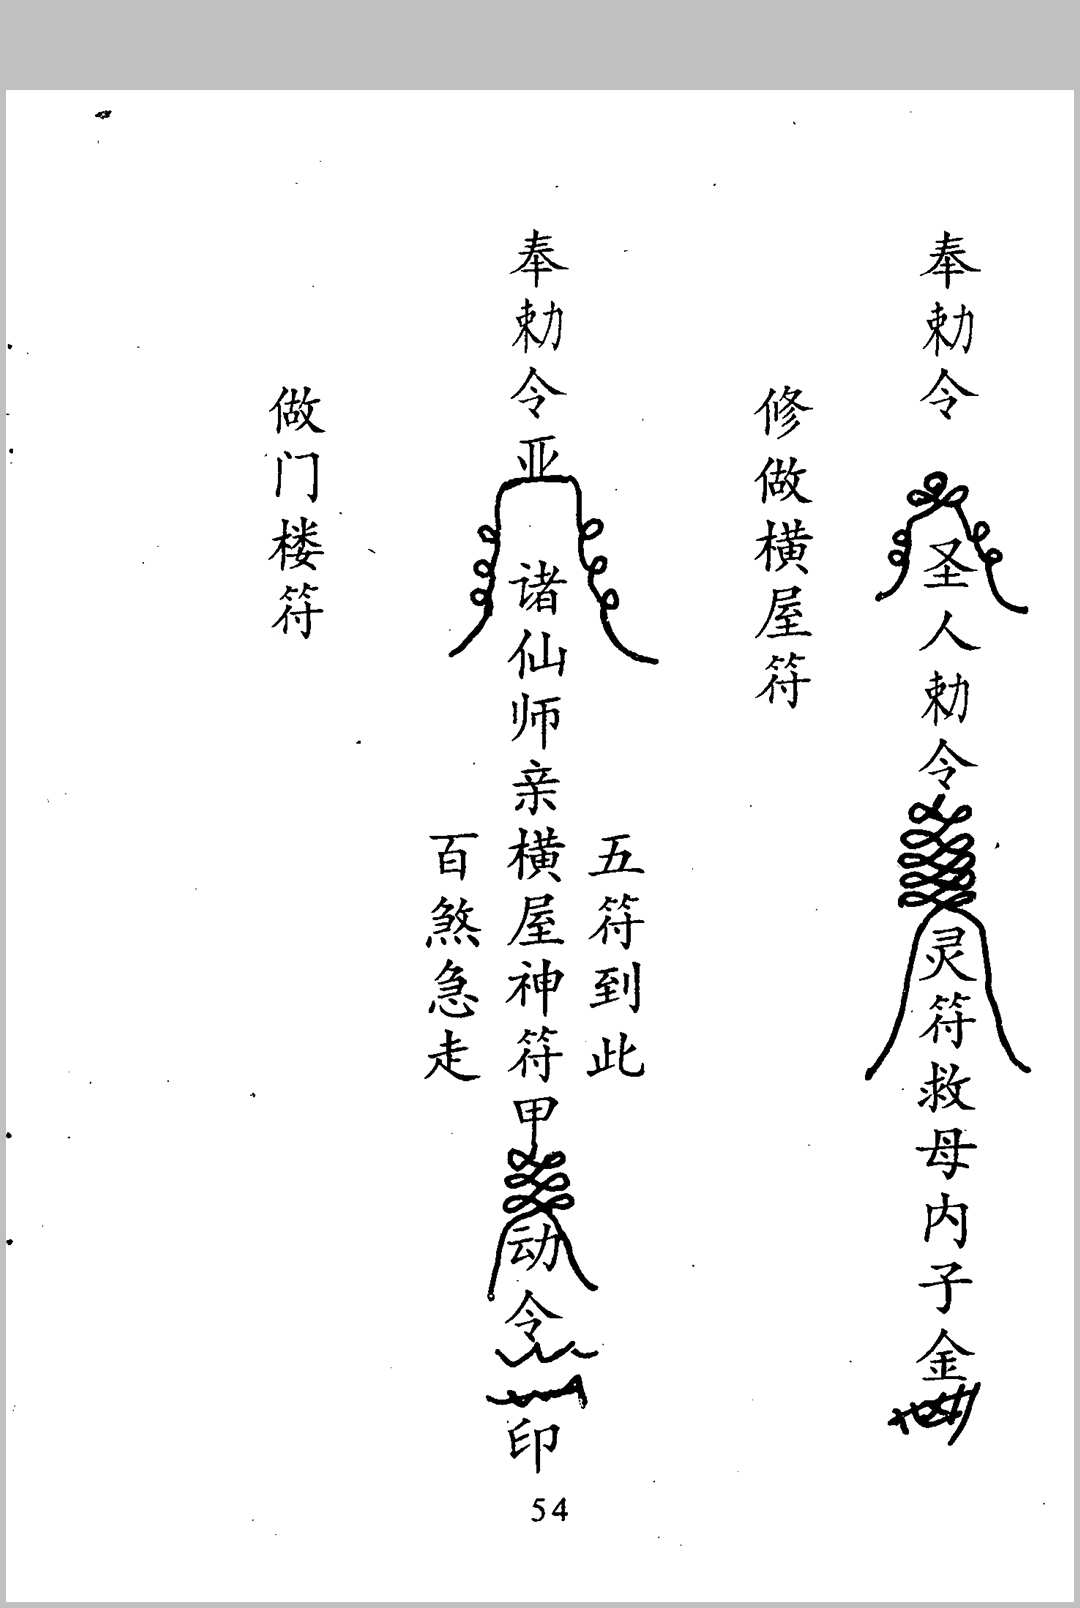 奉勅令
圣人勅令
灵符救母内子金
修做横屋符
五符到此
奉勅令亚
诸仙师亲横屋神符甲
动令
印
百煞急走
做门楼符
54